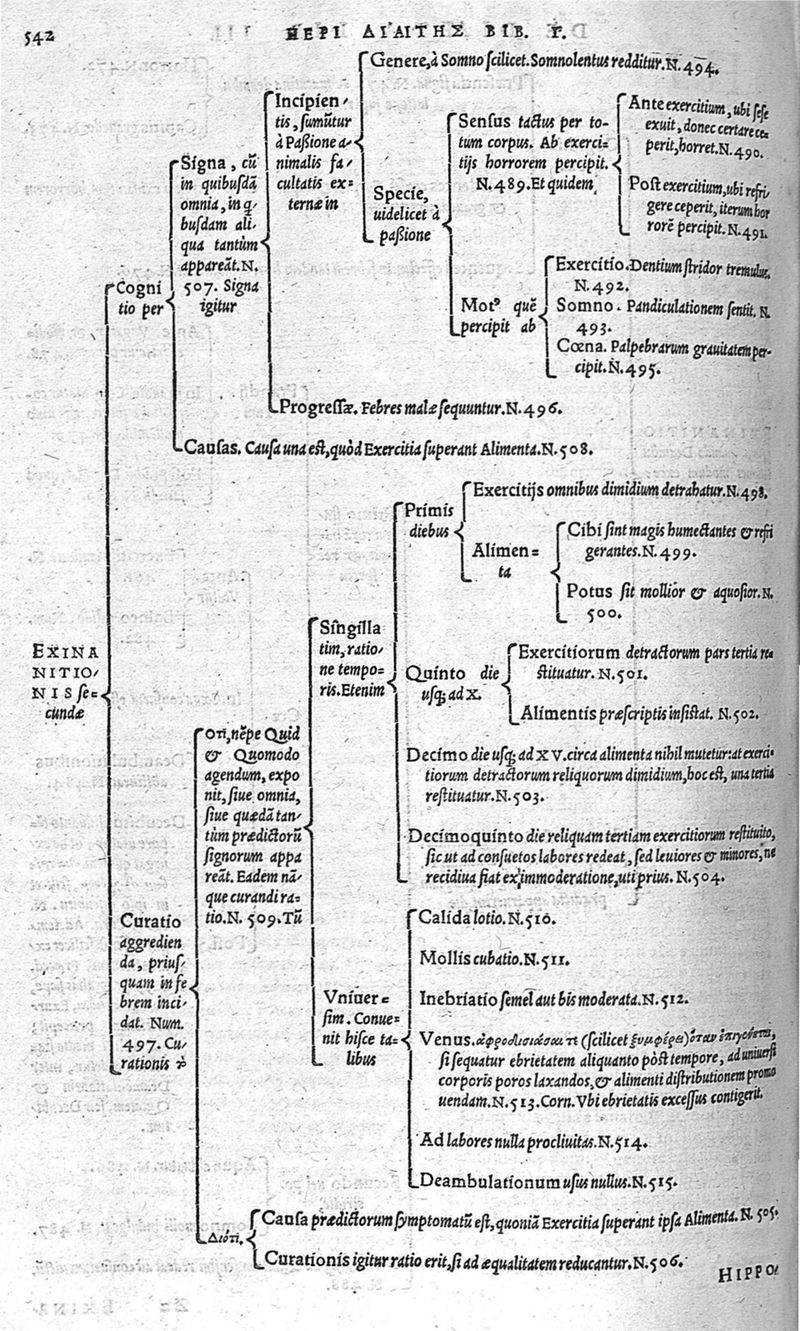 542
ΠΕΡΙ ΔΙΑΙΤΗΣ ΒΙΒ. Γ.
EXINA
NITIO-
NIS se-
cundæ
Cogni
tio per
Signa, cũ
in quibusdã
omnia, in q̃-
busdam ali-
qua tantùm
appareãt. N.
507. Signa
igitur
Incipien-
tis, sumũtur
à Passione a-
nimalis fa-
cultatis ex-
ternæ in
Genere, à Somno scilicet. Somnolentus redditur. N. 494.
Specie,
uidelicet à
passione
Sensus tactus per to-
tum corpus. Ab exerci-
tijs horrorem percipit.
N. 489. Et quidem
Ante exercitium, ubi sese
exuit, donec certare cœ-
perit, horret. N. 490.
Post exercitium, ubi refri-
gere ceperit, iterum hor
rorẽ percipit. N. 491.
Motꝰ quẽ
percipit ab
Exercitio. Dentium stridor tremulus.
N. 492.
Somno. Pandiculationem sentit. N.
493.
Cœna. Palpebrarum grauitatem per-
cipit. N. 495.
Progressæ. Febres malæ sequuntur. N. 496.
Causas. Causa una est, quòd Exercitia superant Alimenta. N. 508.
Curatio
aggredien
da, prius-
quam in fe
brem inci-
dat. Num.
497. Cu-
rationis
ὅτι, nẽpe Quid
& Quomodo
agendum, expo
nit, siue omnia,
siue quædã tan-
tùm prædictorũ
signorum appa
reãt. Eadem nã-
que curandi ra-
tio. N. 509. Tũ
Singilla
tim, ratio-
ne tempo-
ris. Etenim
Primis
diebus
Exercitijs omnibus dimidium detrahatur. N. 498.
Alimen-
ta
Cibi sint magis humectantes & refri
gerantes. N. 499.
Potus sit mollior & aquosior. N.
500.
Quinto die
usq; ad X.
Exercitiorum detractorum pars tertia re-
stituatur. N. 501.
Alimentis præscriptis insistat. N. 502.
Decimo die usq; ad XV. circa alimenta nihil mutetur: at exerci-
tiorum detractorum reliquorum dimidium, hoc est, una tertia
restituatur. N. 503.
Decimoquinto die reliquam tertiam exercitiorum restituito,
sic ut ad consuetos labores redeat, sed leuiores & minores, ne
recidiua fiat ex immoderatione, uti prius. N. 504.
Vniuer-
sim. Conue-
nit hisce ta-
libus
Calida lotio. N. 510.
Mollis cubatio. N. 511.
Inebriatio semel aut bis moderata. N. 512.
Venus. ἀφροδισιάσαι τι (scilicet ξυμφέρει) ὅταν
si sequatur ebrietatem aliquanto pòst tempore, ad uniuersi
corporis poros laxandos, & alimenti distributionem promo
uendam. N. 513. Corn. Vbi ebrietatis excessus contigerit.
Ad labores nulla procliuitas. N. 514.
Deambulationum usus nullus. N. 515.
Διότι.
Causa prædictorum symptomatũ est, quoniã Exercitia superant ipsa Alimenta. N. 505.
Curationis igitur ratio erit, si ad æqualitatem reducantur. N. 506.
HIPPO-